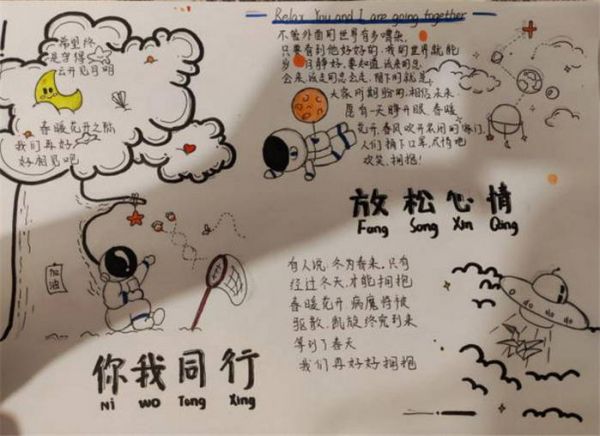 Relax You and I are going together
希望终
是守得
云开见月明
春暖花开之际
我们再好
好相见吧
不管外面的世界有多嘈杂,
只要看到他好好的,我的世界就能
岁月静好.要知道该来的总
会来,该走的总会走,留下的就是
大家所期盼的.相信未来
愿有一天睁开眼、春暖
花开,春风吹开紧闭的家门,
人们摘下口罩,尽情地
欢笑、拥抱!
放松心情
Fang Song Xin Qing
加油
有人说,冬为春来,只有
经过冬天,才能拥抱
春暖花开,病魔将被
驱散,凯旋终究到来
等到了春天
我们再好好拥抱
你我同行
Ni wo Tong Xing